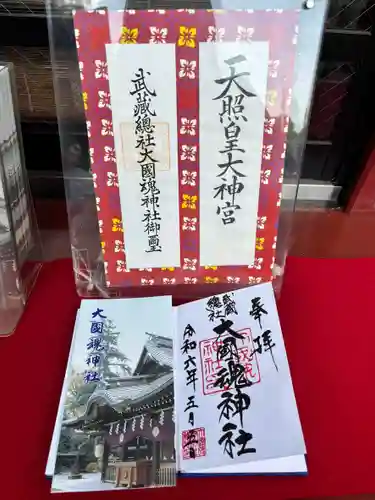 天照皇大神宮
武蔵總社大國魂神社御璽
大國魂神社
奉拝
武蔵
總社
大國魂神社
令和六年五月五日